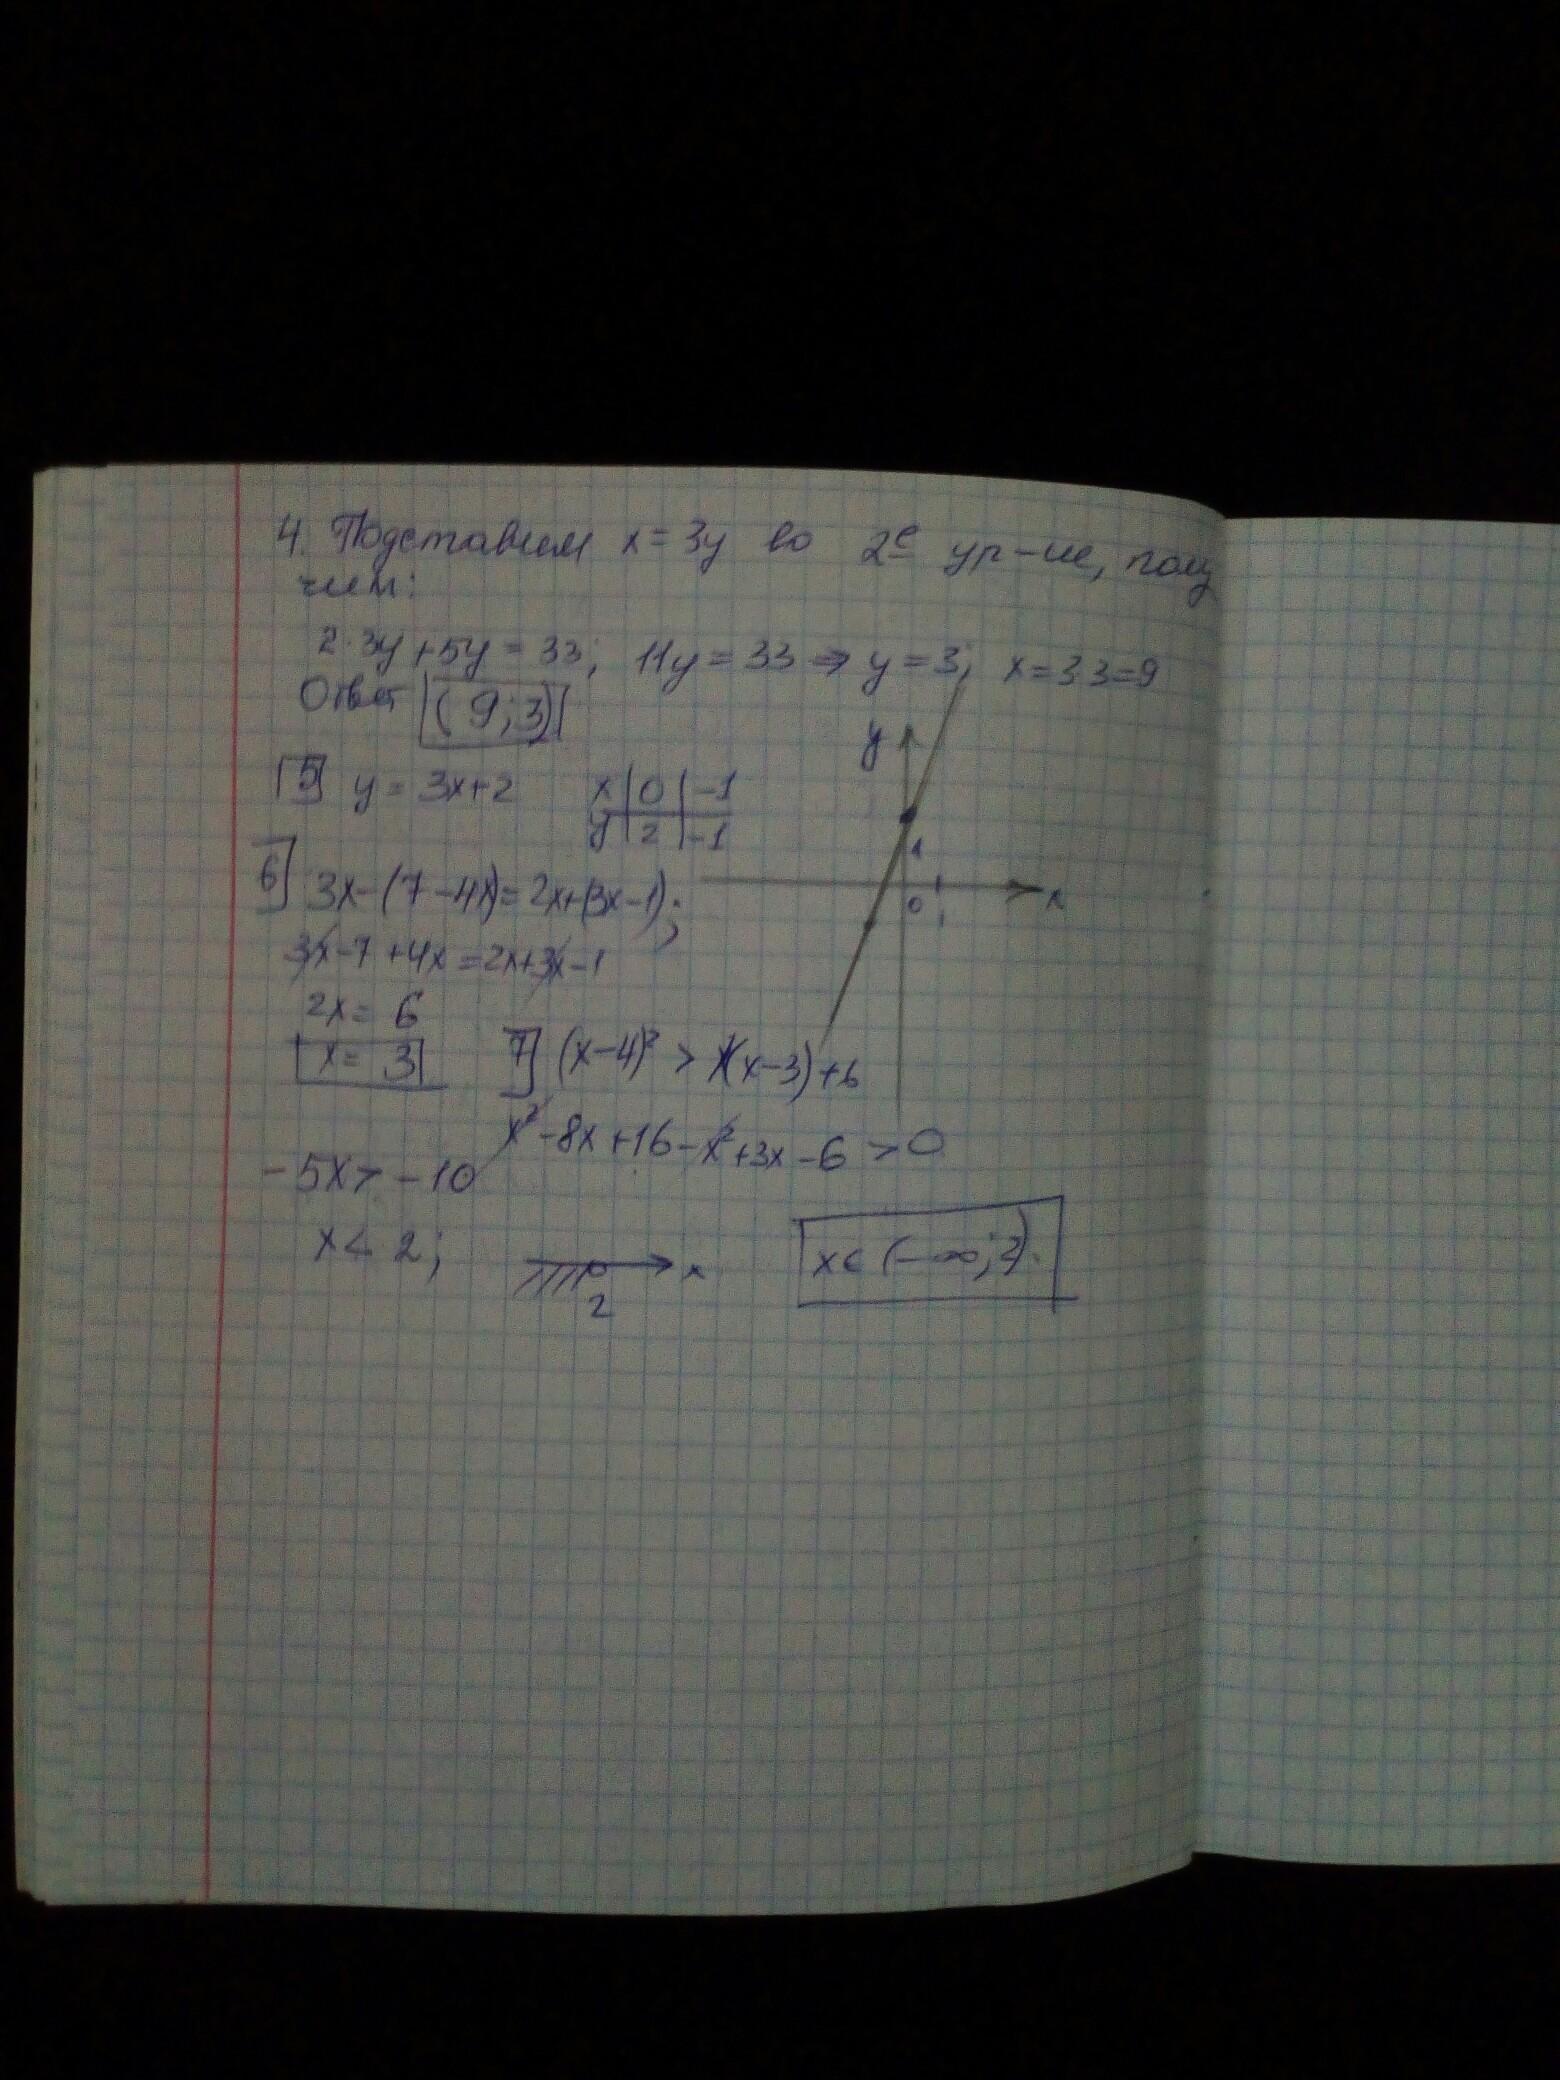 4. Подставим x = 3y во 2е ур-ие, полу
чим:
2·3y + 5y = 33; 11y = 33 ⇒ y = 3; x = 3·3 = 9
Ответ (9; 3)
5 y = 3x + 2
x | 0 | -1
y | 2 | -1
y
1
0 1 x
6 3x - (7 - 4x) = 2x + (3x - 1);
3x - 7 + 4x = 2x + 3x - 1
2x = 6
x = 3
7 (x - 4)² > x(x - 3) + 6
x² - 8x + 16 - x² + 3x - 6 > 0
-5x > -10
x < 2;
2 x
x ∈ (-∞; 2).